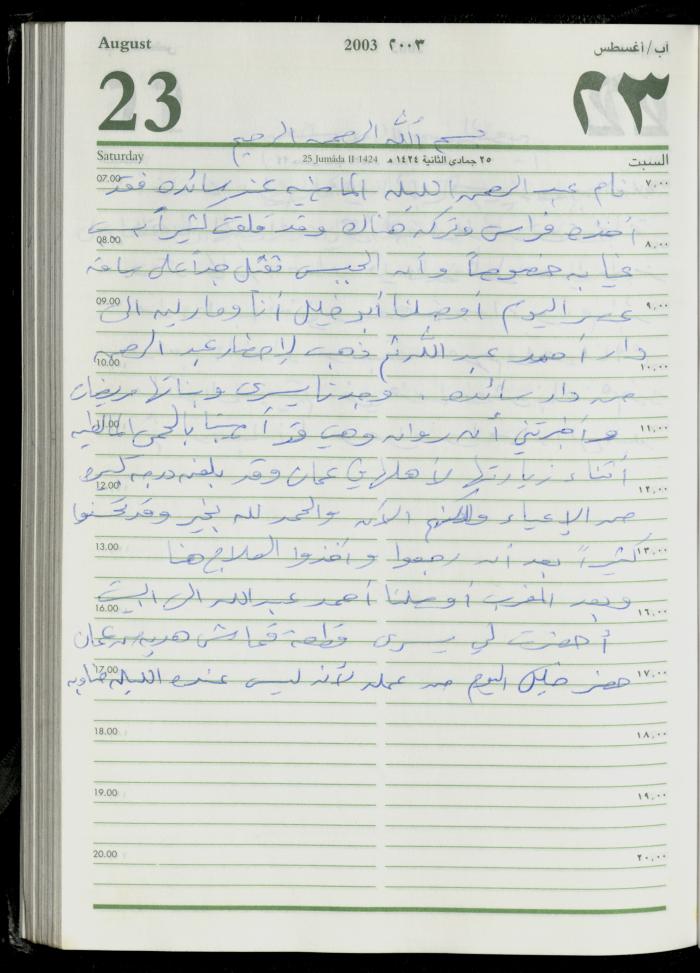 August 2003 ٢٠٠٣ آب/أغسطس
23 ٢٣
بسم الله الرحمن الرحيم
Saturday 25 Jumāda II 1424 ٢٥ جمادى الثانية ١٤٢٤ هـ السبت
07.00 نام عبد الرحمن الليلة الماضية عند سائده فقد ٧,٠٠
أخذه فراس وتركه هناك وقد قلقت كثيراً بسبب
08.00 ٨,٠٠
غيابه خصوصاً وأنه الجبس ثقيل جداً على ساقه
09.00 ٩,٠٠
عصر اليوم أوصلنا أبو خليل أنا ومارلين الى
دار أحمد عبد الله ثم ذهب لإحضار عبد الرحمن
10.00 ١٠,٠٠
من دار سائده . وجدنا يسرى وبناتها مريضات
11.00 وأخبرتني أن روان وهي قد أصبنا بالحمى المالطيه ١١,٠٠
أثناء زيارتها لأهلها في عمان وقد بلغن درجه كبيره
12.00 ١٢,٠٠
من الإعياء ولكنهم الآن والحمد لله بخير وقد تحسنوا
13.00 كثيراً بعد أن رجعوا وأخذوا العلاج هنا ١٣,٠٠
وبعد المغرب أوصلنا أحمد عبد الله الى البيت
16.00 ١٦,٠٠
أحضرت لي يسرى قطعة قماش هديه من عمان
17.00 حضر خليل اليوم من عمله لأنه ليس عنده الليلة مناوبه ١٧,٠٠
18.00 ١٨,٠٠
19.00 ١٩,٠٠
20.00 ٢٠,٠٠